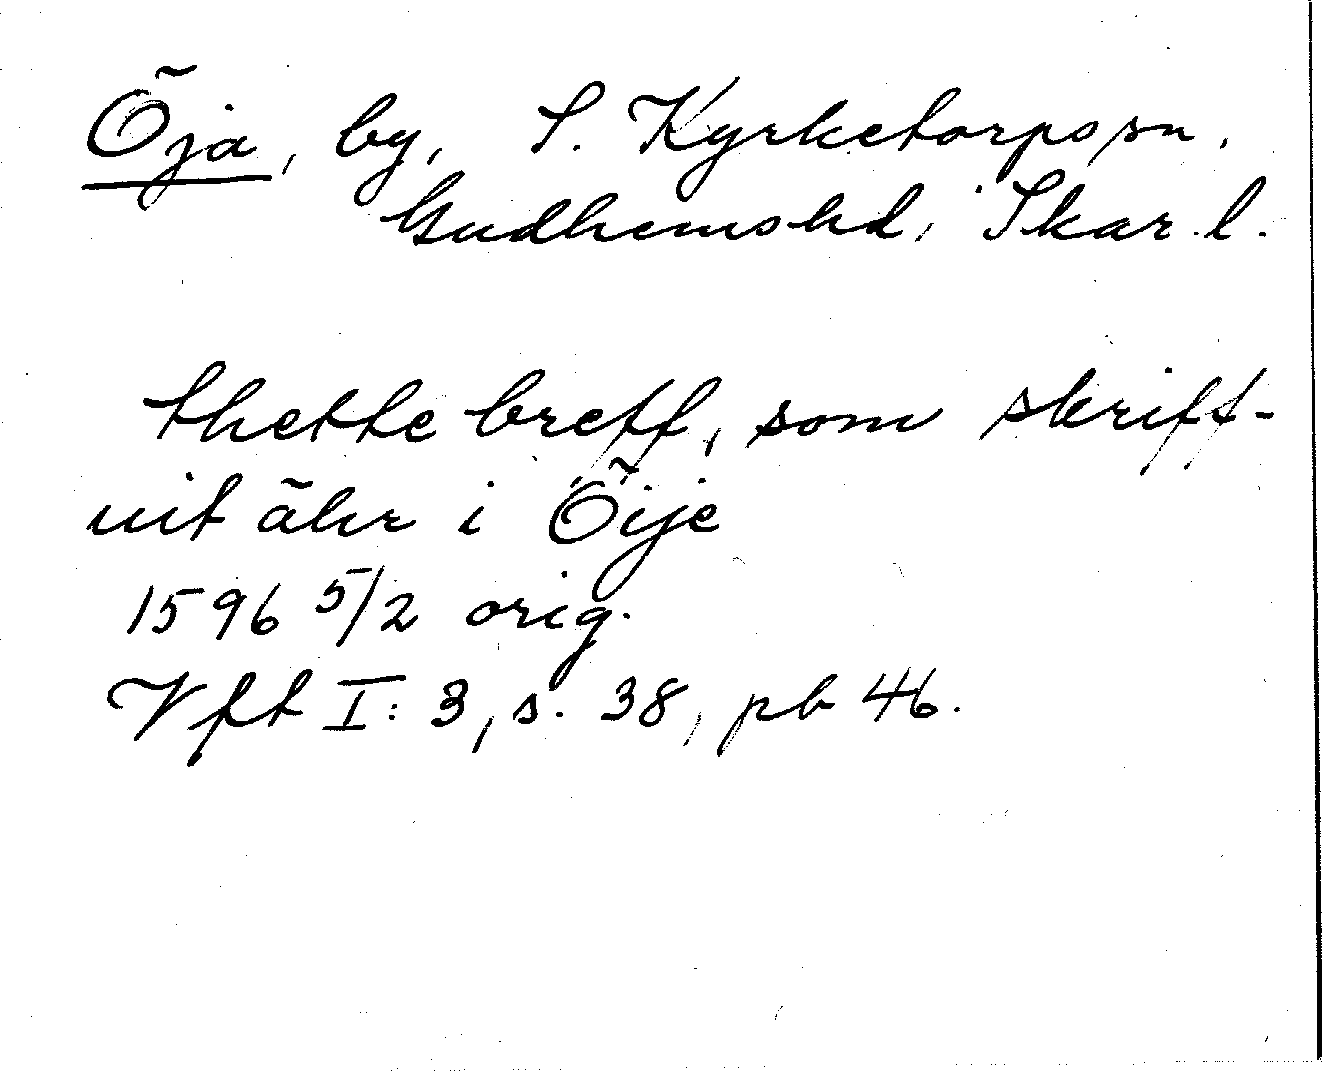 Öja, by, S. Kyrketorps sn,
Gudhems hd, Skar. l.
thette breff, som skriff-
uit ähr i Öije
1596 5/2 orig.
Vft I: 3, s. 38, pb 46.